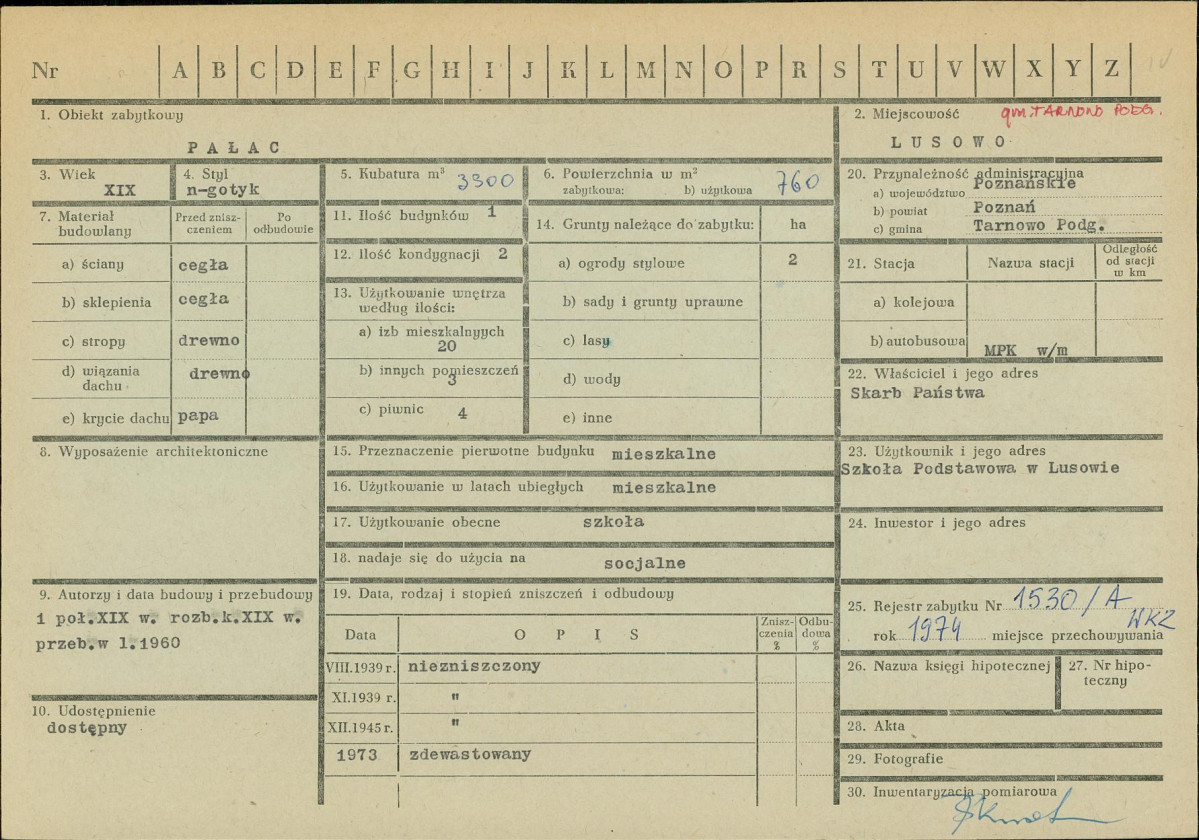 Nr A B C D E F G H I J K L M N O P R S T U V W X Y Z
1. Obiekt zabytkowy
PAŁAC
2. Miejscowość gm. TARNOWO PODG.
LUSOWO
3. Wiek
XIX
4. Styl
n-gotyk
5. Kubatura m³ 3300
6. Powierzchnia w m²
zabytkowa: b) użytkowa 760
20. Przynależność administracyjna
a) województwo Poznańskie
b) powiat Poznań
c) gmina Tarnowo Podg.
7. Materiał budowlany
Przed zniszczeniem
Po odbudowie
a) ściany cegła
b) sklepienia cegła
c) stropy drewno
d) wiązania dachu drewno
e) krycie dachu papa
11. Ilość budynków 1
12. Ilość kondygnacji 2
13. Użytkowanie wnętrza
według ilości:
a) izb mieszkalnyych
20
b) innych pomieszczeń
3
c) piwnic 4
14. Grunty należące do zabytku: ha
a) ogrody stylowe 2
b) sady i grunty uprawne
c) lasy
d) wody
e) inne
21. Stacja
Nazwa stacji
Odległość
od stacji
w km
a) kolejowa
b) autobusowa MPK w/m
22. Właściciel i jego adres
Skarb Państwa
8. Wyposażenie architektoniczne
15. Przeznaczenie pierwotne budynku mieszkalne
16. Użytkowanie w latach ubiegłych mieszkalne
17. Użytkowanie obecne szkoła
18. nadaje się do użycia na socjalne
23. Użytkownik i jego adres
Szkoła Podstawowa w Lusowie
24. Inwestor i jego adres
9. Autorzy i data budowy i przebudowy
1 poł.XIX w. rozb.k.XIX w.
przeb.w l.1960
10. Udostępnienie
dostępny
19. Data, rodzaj i stopień zniszczeń i odbudowy
Data
OPIS
Zniszczenia %
Odbudowa %
VIII.1939 r. niezniszczony
XI.1939 r. "
XII.1945 r. "
1973 zdewastowany
25. Rejestr zabytku Nr 1530/A
rok 1974 miejsce przechowywania WKZ
26. Nazwa księgi hipotecznej
27. Nr hipoteczny
28. Akta
29. Fotografie
30. Inwentaryzacja pomiarowa